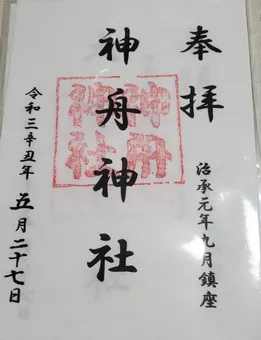 奉拝
治承元年九月鎮座
神舟神社
神舟神社
令和三辛丑年 五月二十七日